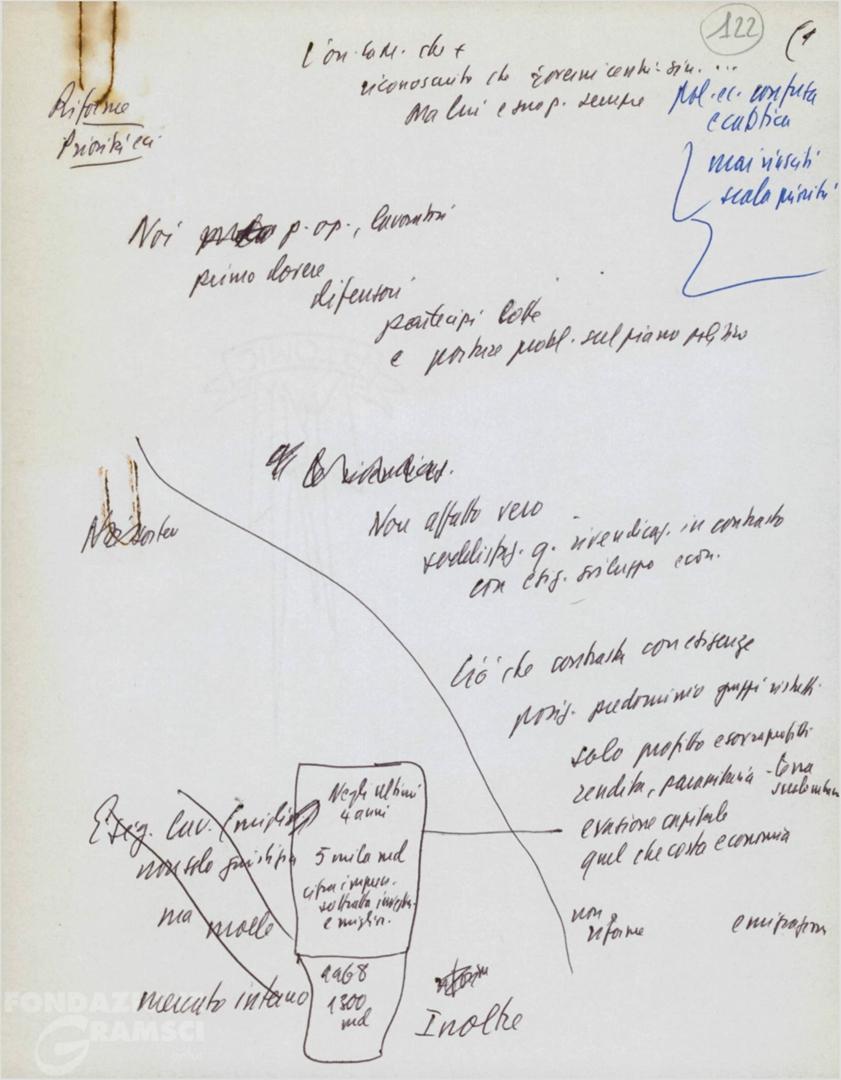 122
(1
L'on. La M. che +
riconosciuto che governi centr. sin. ...
Ma lui e snop. sempre
pol. ec. confusa
e caotica
mai riusciti
scala priorità
Riforme
Priorità ec.
Noi p. op., lavoratori
primo dovere
difensori
partecipi lotte
e portare probl. sul piano politico
rivendicaz.
Non affatto vero
soddisfaz. q. rivendicaz. in contrasto
con esig. sviluppo econ.
Noi sosten
Ciò che contrasta con esigenze
posiz. predominio gruppi ristretti
solo profitto e sovraprofitti
rendita, parassitaria - terra
evasione capitale
quel che costa economia
non
riforme
emigrazione
Esig. lav. (miglior)
non solo giustizia
ma molle
mercato interno
Negli ultimi
4 anni
5 mila md
cifra impress.
sottratta
e miglior.
1968
1300
md
Inoltre
FONDAZIONE
GRAMSCI